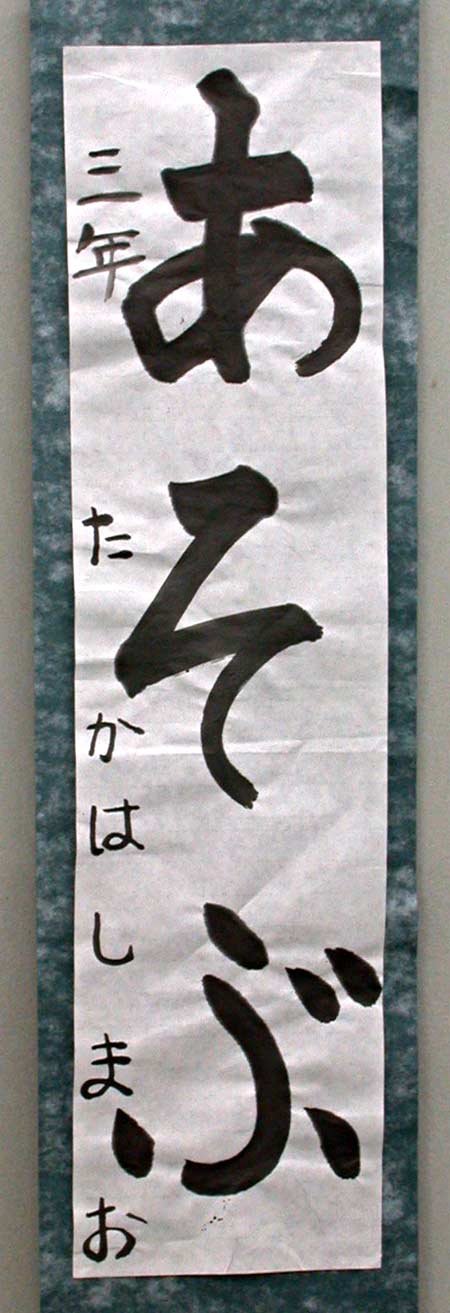 あそぶ
三年 たかはしまお